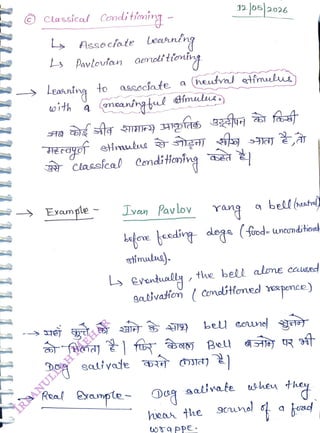 12/05/2026
© Classical Conditioning -
↳ Associate learning
↳ Pavlovian conditioning
→ Learning to associate a neutral stimulus
with a meaningful stimulus.
जब कोई जीव सामान्य प्राकृतिक उद्दीपन को किसी
महत्वपूर्ण stimulus से जोड़ना सीख जाता है, तो
उसे classical conditioning कहते है।
→ Example - Ivan Pavlov rang a bell (neutral)
before feeding dogs (food - unconditioned
stimulus).
↳ Eventually, the bell alone caused
salivation (conditioned responce)
→ यहाँ कुत्ते को खाने के साथ bell sound सुनने
को मिलता है। फिर केवल Bell बजाने पर भी
Dog salivate करने लगता है।
→ Real Example - Dog salivate when they
hear the sound of a food
wrappe.